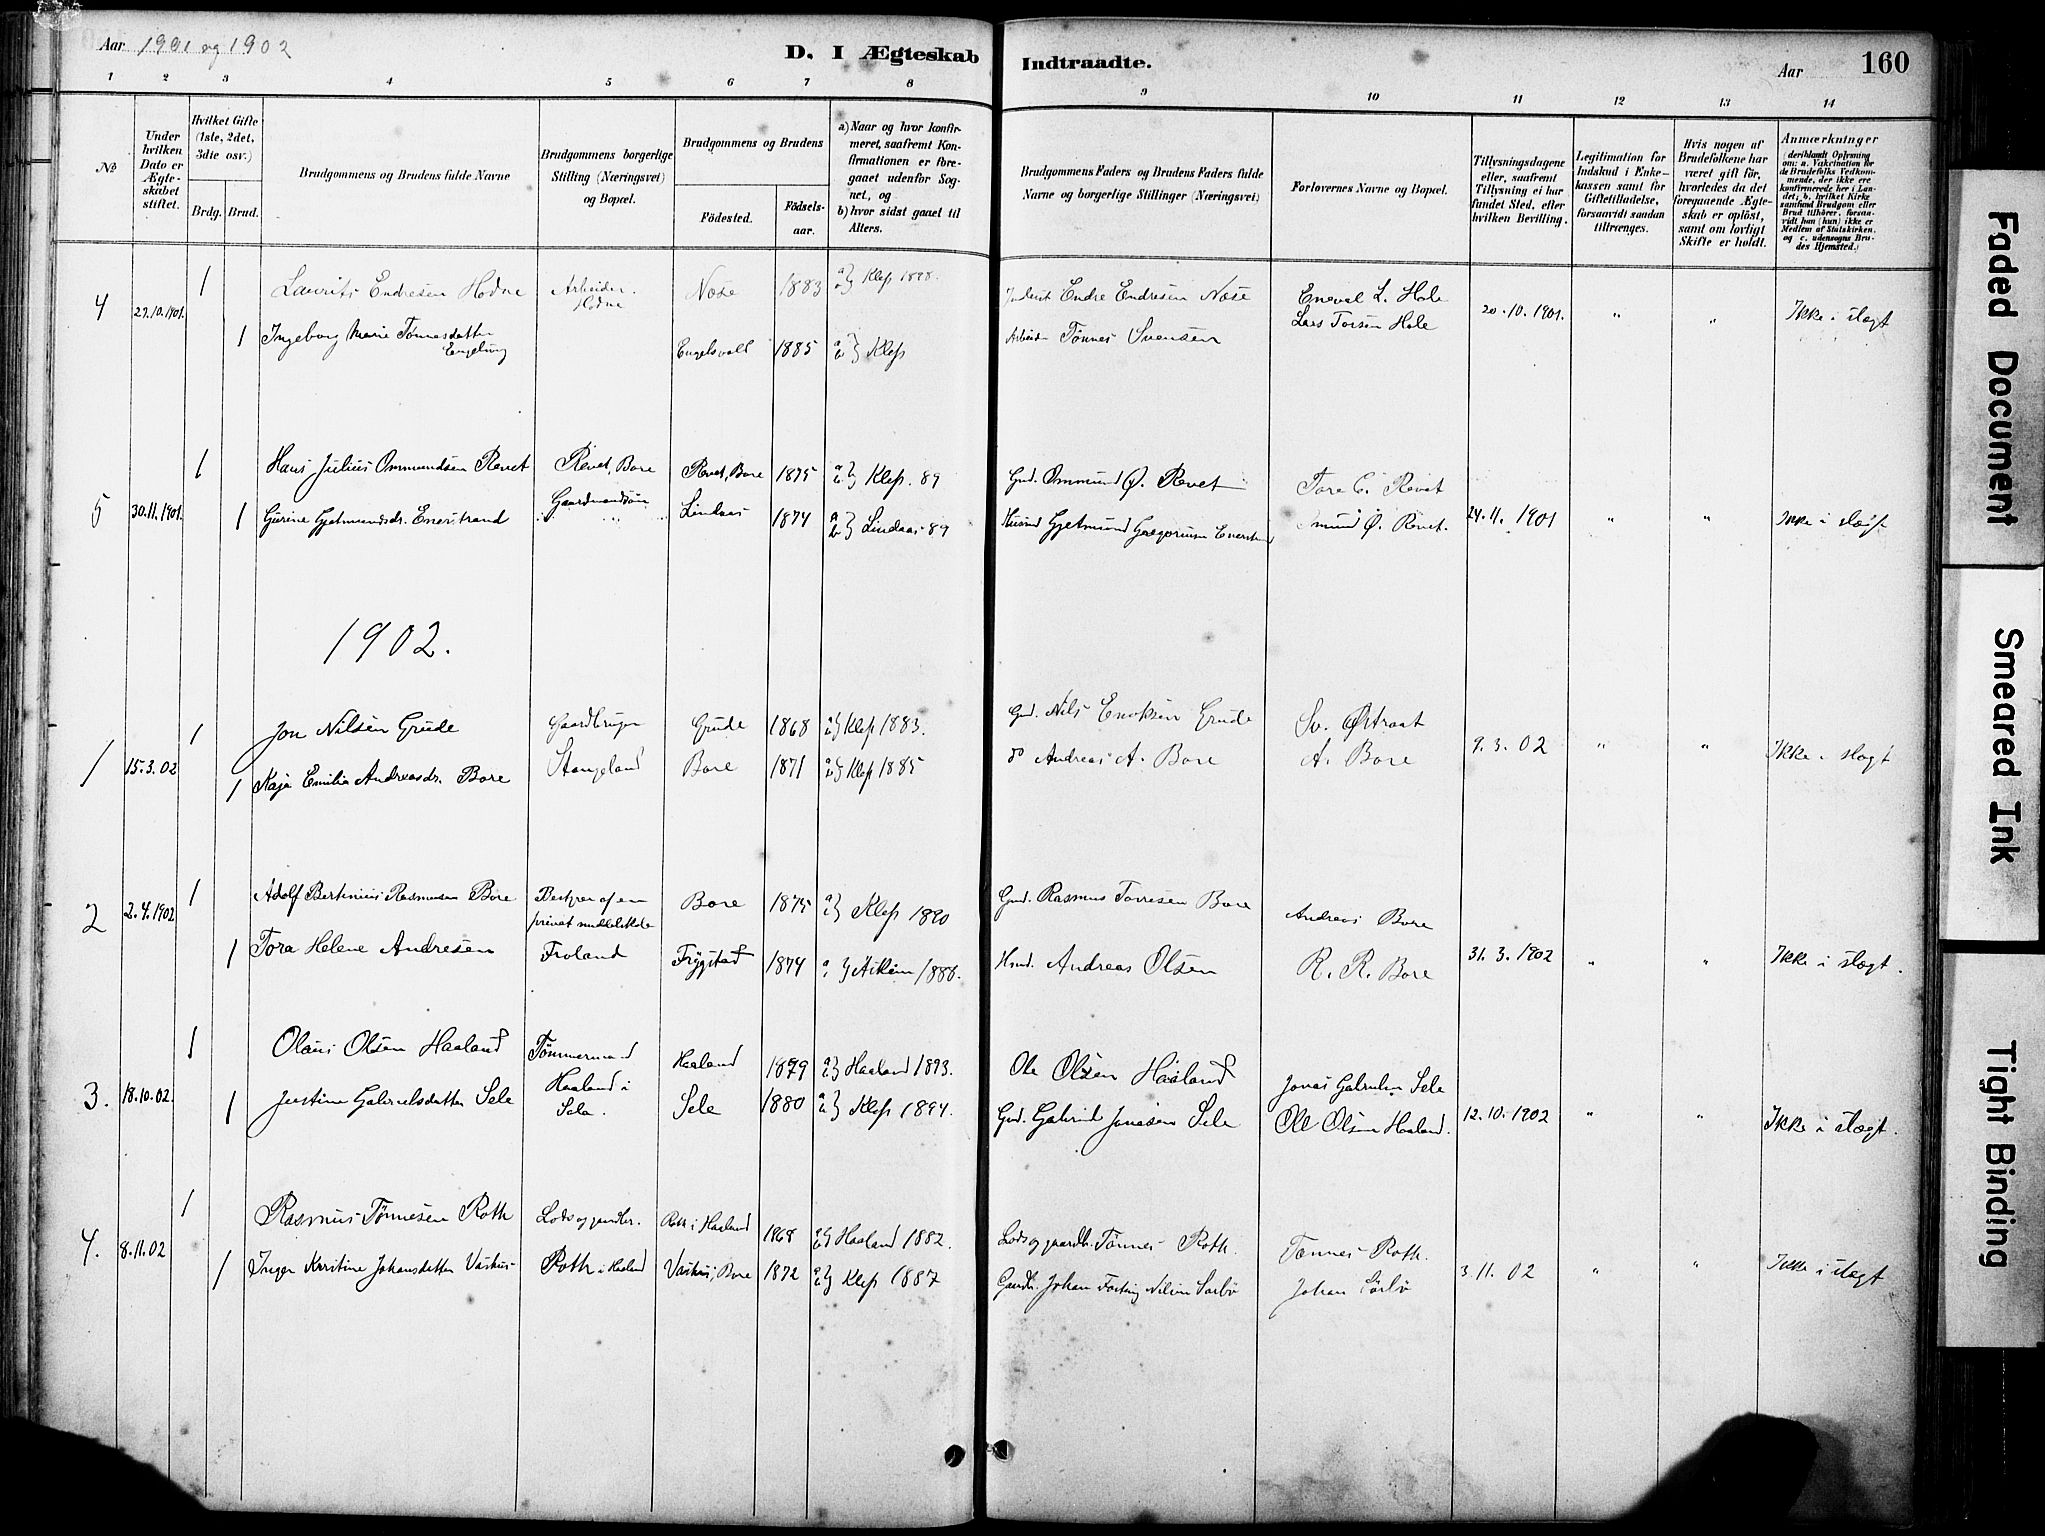 Aar 1901 og 1902
D. I Ægteskab Indtraadte.
Aar 160
1 2 3 4 5 6 7 8 9 10 11 12 13 14
No
Under hvilken Dato er Ægteskabet stiftet.
Hvilket Gifte (1ste, 2det, 3die osv.)
Brdg. Brud.
Brudgommens og Brudens fulde Navne
Brudgommens borgerlige Stilling (Næringsvei) og Bopæl.
Brudgommens og Brudens
Födested.
Födselsaar.
a) Naar og hvor konfirmeret, saafremt Konfirmationen er foregaaet udenfor Sognet, og
b) hvor sidst gaaet til Alters.
Brudgommens Faders og Brudens Faders fulde Navne og borgerlige Stillinger (Næringsvei)
Forlovernes Navne og Bopæl.
Tillysningsdagene eller, saafremt Tillysning ei har fundet Sted, efter hvilken Bevilling.
Legitimation for Indskud i Enkekassen samt for Giftetilladelse, forsaavidt saadan tiltrænges.
Hvis nogen af Brudefolkene har været gift för, hvorledes da det foregaaende Ægteskab er oplöst, samt om lovligt Skifte er holdt.
Anmærkninger (deriblandt Oplysning om: a. Vakcination for de Brudefolks Vedkommende, der ikke ere konfirmerede her i Landet, b. hvilket Kirkesamfund Brudgom eller Brud tilhörer, forsaavidt han (hun) ikke er Medlem af Statskirken, og c. udensogns Brudes Hjemsted.)
4 27.10.1901. 1 Laurits Endresen Hodne Arbeider Hodne Næse 1883 a b} Klep 1898. Endre Endresen Næse Eneval L. Hole 20.10.1901. " " Ikke i slægt
Lars Torsen Hole
1 Ingeborg Marie Tønnesdatter Engelsvold 1885 a b} Klep Arbeider Tønnes Svensen
5 30.11.1901. 1 Hans Julius Ommundsen Revet Revet, Bore Revet, Bore 1875 a b} Klep 89 Gmd. Ommund Ø. Revet Tore C. Revet 24.11.1901 " " Ikke i slægt
1 Gurine Gjetmundsdr. Enerstrand Gaardmandssøn Lindaas 1874 a b} Lindaas 89 Husmd Gjetmund Gregoriusen Ø. Revet.
1902.
1 15.3.02 1 Jon Nilsen Grude Gaardbruger Grude 1868 a b} Klep 1883. Gmd. Nils Enoksen Grude Sv. Østraat 9.3.02 " " Ikke i slægt
1 Kaja Emilia Andreasdr. Bore Stangeland Bore 1871 a b} Klep 1885 do Andreas A. Bore A. Bore
2 2.4.1902 1 Adolf Bertinius Rasmussen Bore Bestyrer af en privat middelskole Bore 1875 a b} Klep 1890 Gmd. Rasmus Torresen Bore Andreas Bore 31.3.1902 " " Ikke i slægt.
1 Tora Helene Andresen Froland Frygstad 1874 a b} 1888. Hsmd. Andreas Olsen R. R. Bore
3. 18.10.02. 1 Olaus Olsen Haaland Tømmermand Haaland 1879 a b} Haaland 1893. Ole Olsen Haaland Jonas Gabrielsen Sele 12.10.1902 " " Ikke i slægt.
1 Justine Gabrielsdatter Sele Haaland i Sele. Sele 1880 a b} Klep 1894. Gmd. Gabriel Jonasen Sele Ole Olsen Haaland.
4. 8.11.02 1 Rasmus Tønnesen Roth Lods og gaardbr. Roth i Haaland 1868 a b} Haaland 1882. Lods og gaardb. Tønnes Roth. Tønnes Roth. 3.11.02 " " Ikke i slægt
1 Inger Kristine Johansdatter Vashus Roth i Haaland Vashus, Bore 1872 a b} Klep 1887 Gaardb. Johan Sørbø Johan Sørbø
Faded Document
Smeared Ink
Tight Binding